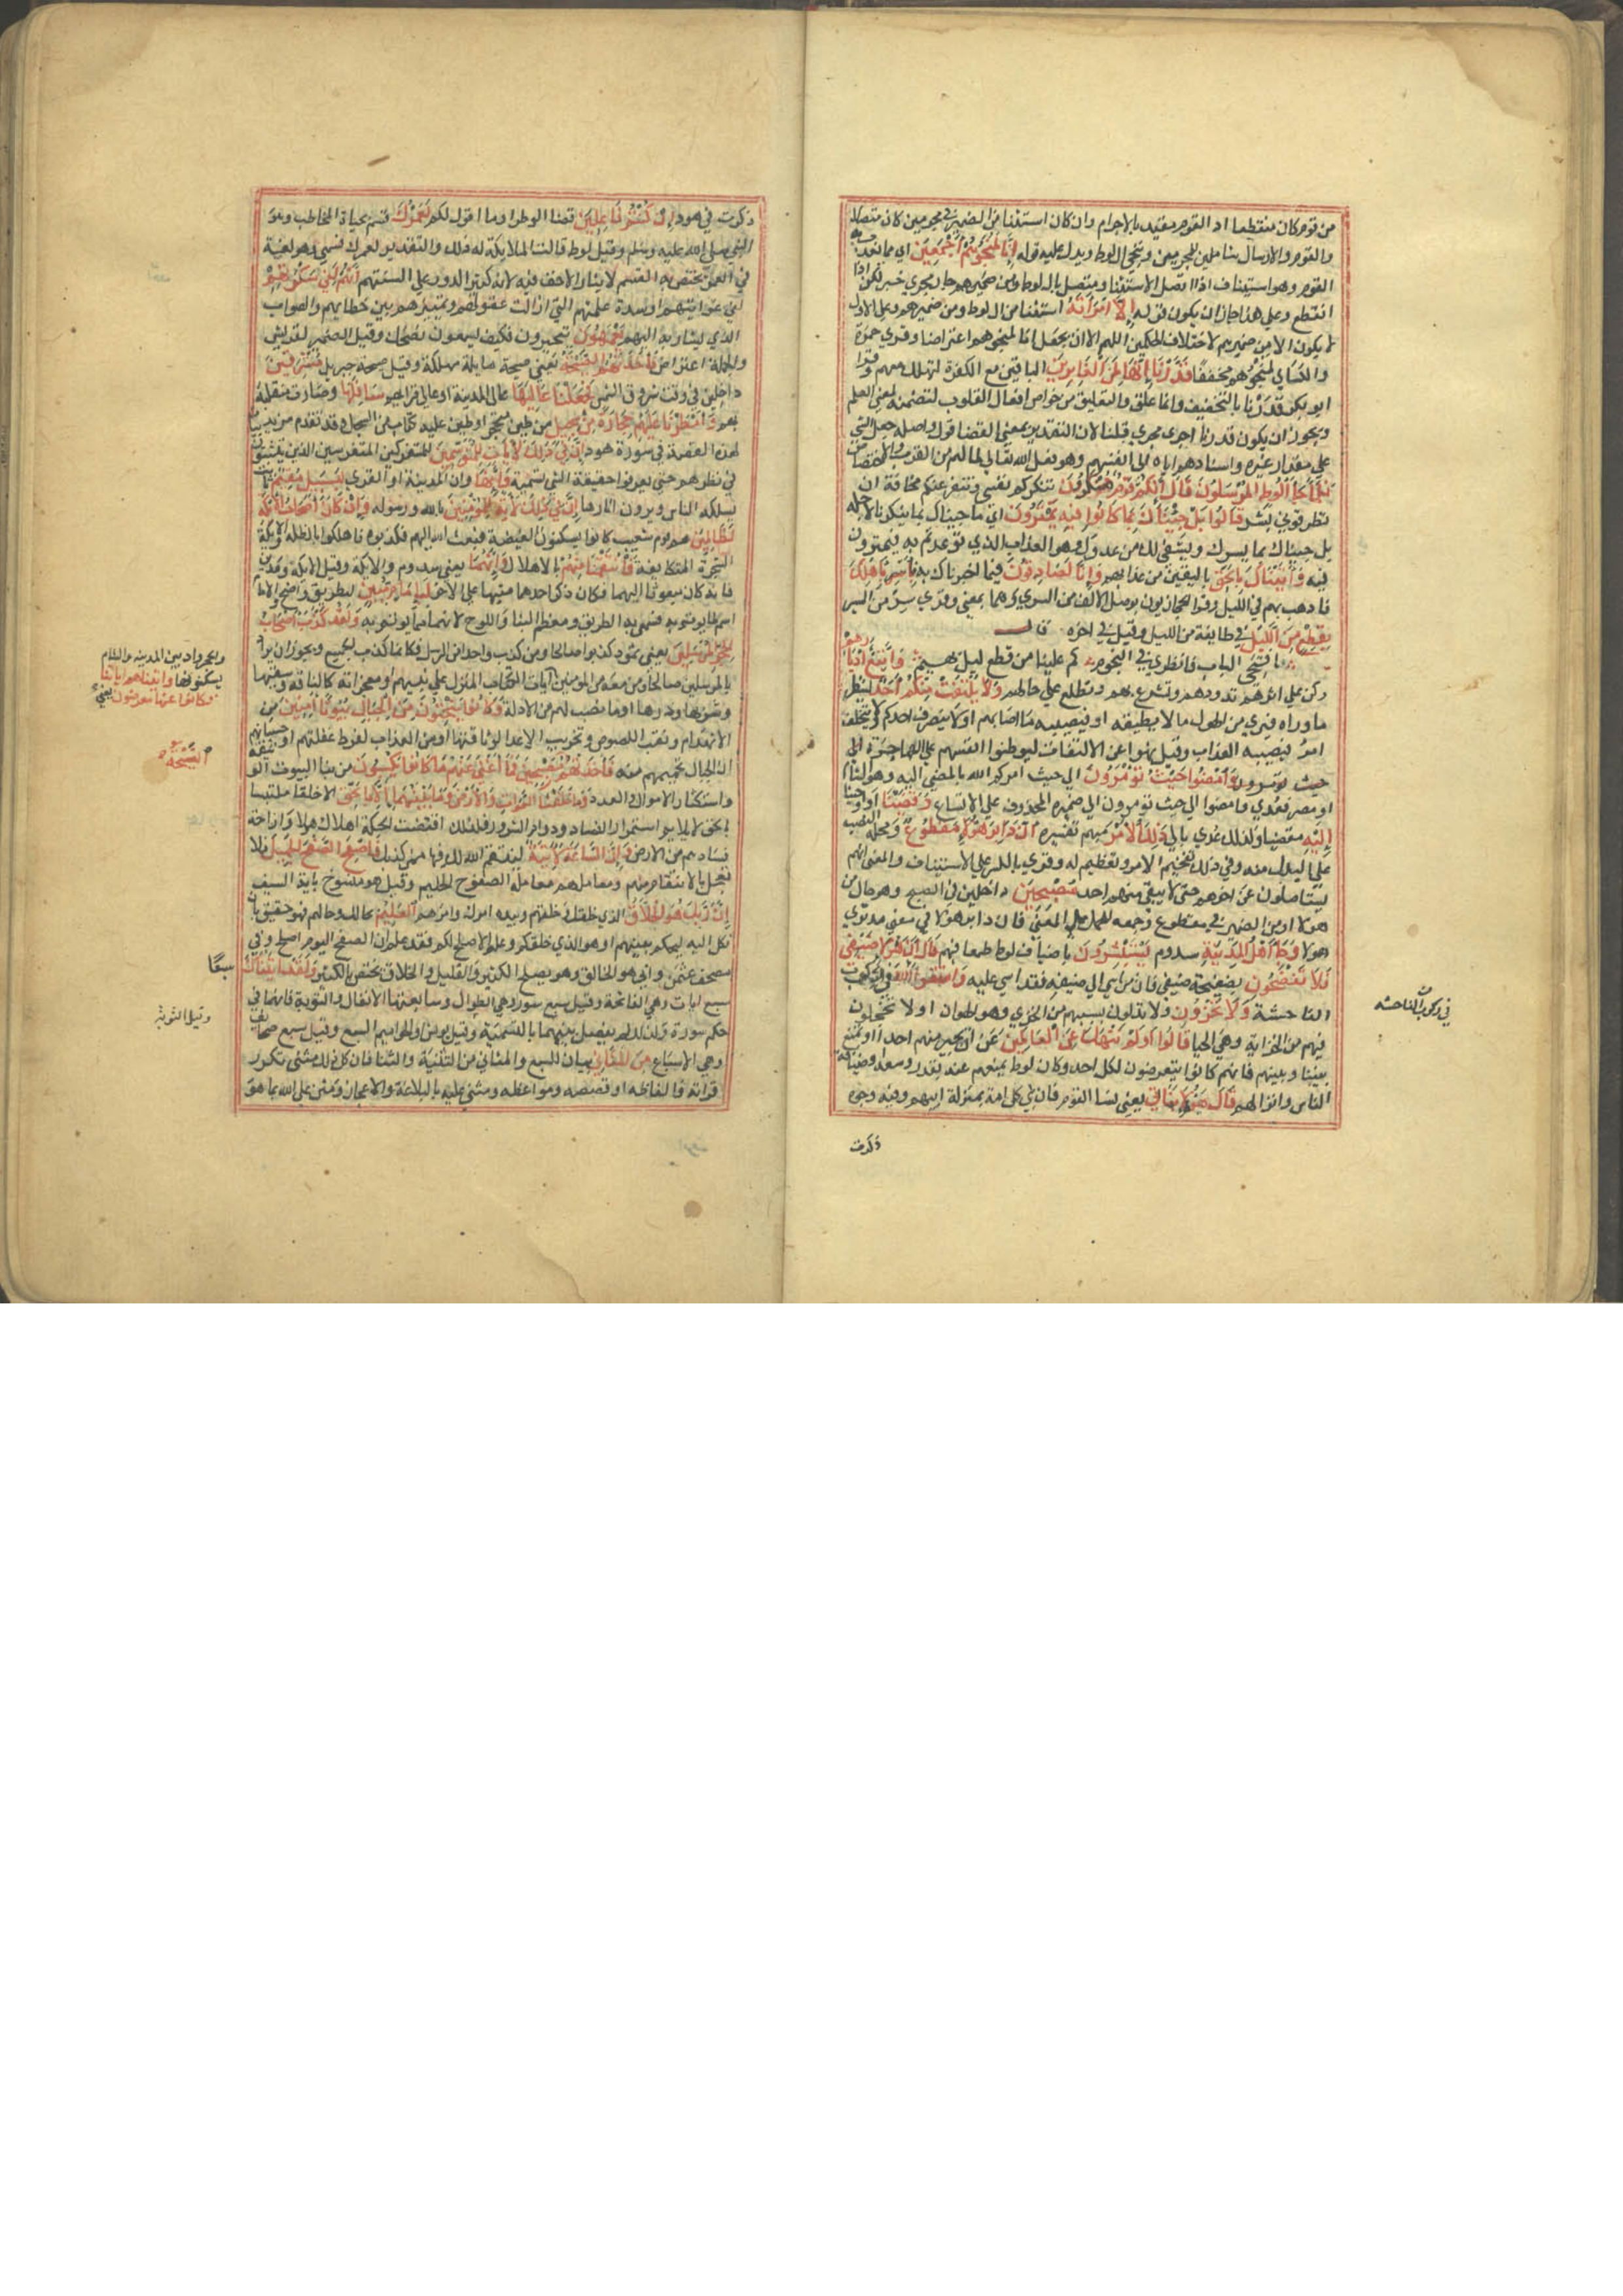 من قوم كان منقطعا اذ القوم مقيد بالاجرام وان كان استثنا من الضمير في مجرمين كان متصلا
والقوم والارسال شاملين للمجرمين وينجى ال لوط ويدل عليه قوله إنا لمنجوهم أجمعين اى مما يعذب به
القوم وهو استيناف اذا اتصل الاستثنا ومتصل بال لوط ومن ضميرهم جار مجرى خبر لكن اذا
انقطع وعلى هذا جاز ان يكون قوله إلا امرأته استثنا من ال لوط ومن ضميرهم وعلى الاول
لا يكون الا من ضميرهم لاختلاف الحكمين اللهم الا ان يجعل انا لمنجوهم اعتراضا وقرى حمزة
والكساى لمنجوهم مخففا قدرنا إنها لمن الغابرين الباقين مع الكفرة لتهلك معهم وقرا
ابو بكر قدرنا بالتخفيف وانما علق والتعليق من خواص افعال القلوب لتضمنه لمعنى العلم
ويجوز ان يكون قدرنا اجرى مجرى قلنا لان التقدير بمعنى القضا قول واصله جعل الشى
على مقدار غيره واسنادهم اياه الى انفسهم وهو فعل الله تعالى لما لهم من القرب والاختصاص
فلما جاء آل لوط المرسلون قال إنكم قوم منكرون تنكركم نفسى وتنفر عنكم مخافة ان
تطرقونى بشر قالوا بل جئناك بما كانوا فيه يمترون اى ما جيناك بما ينكرنا لاجله
بل جيناك بما يسرك ويشفى لك من عدوك وهو العذاب الذى توعدتم به فيمترون
فيه وأتيناك بالحق باليقين من عذابهم وإنا لصادقون فيما اخبرناك به فأسر بأهلك
فاذهب بهم فى الليل وقرا الحجازيون بوصل الالف من السرى وهما بمعنى وقرى سر من السير
بقطع من الليل فى طايفة من الليل وقيل فى اخره قال
افتحى الباب فانظرى فى النجوم كم علينا من قطع ليل بهيم واتبع أدبارهم
وكن على اثرهم تذودهم وتسرع بهم وتطلع على حالهم ولا يلتفت منكم أحد لينظر
ما وراه فيرى من الهول ما لا يطيقه او فيصيبه ما اصابهم او لا ينصرف احدكم ولا يتخلف
امر فيصيبه العذاب وقيل نهوا عن الالتفات ليوطنوا انفسهم على المهاجرة الى
حيث تؤمرون وامضوا حيث تؤمرون الى حيث امركم الله بالمضى اليه وهو الشام
او مصر فعدى وامضوا الى حيث تومرون الى ضميره المحذوف على الاتساع وقضينا او اوحينا
إليه مقضيا ولذلك عدى بالى ذلك الأمر مبهم تفسيره أن دابر هؤلاء مقطوع ومحله النصب
على البدل منه وفى ذلك تفخيم الامر وتعظيم له وقرى بالكسر على الاستيناف والمعنى انهم
يستاصلون عن اخرهم حتى لا يبقى منهم احد مصبحين داخلين فى الصبح وهو حال من
هولا او من الضمير فى مقطوع وجمعه للحمل على المعنى فان دابر هولا فى معنى مدبرى
هولا وجاء أهل المدينة سدوم يستبشرون باضياف لوط طمعا فيهم قال إن هؤلاء ضيفى
فلا تفضحون بفضيحة ضيفى فان من اسى الى ضيفه فقد اسى عليه واتقوا الله فى ركوب
الفاحشة ولا تخزون ولا تذلون بسببهم من الخزى وهو الهوان او لا تخجلون
فيهم من الخزاية وهى الحيا قالوا أولم ننهك عن العالمين عن ان تجير منهم احدا او تمنع
بيننا وبينهم فانهم كانوا يتعرضون لكل احد وكان لوط يمنعهم عنه بقدر وسعه او ضيافة
الناس وانزالهم قال هؤلاء بناتى يعنى نسا القوم فان نبى كل امة بمنزلة ابيهم وفيه وجوه
ذكرت
فى ركوب الفاحشة
ذكرت فى هود إن كنتم فاعلين قضا الوطر او ما اقول لكم لعمرك قسم بحياة المخاطب وهو
النبى صلى الله عليه وسلم وقيل لوط قالت الملايكة له ذلك والتقدير لعمرك قسمى وهو لغة
فى العمر يختص به القسم لايثار الاخف فيه لانه كثير الدور على السنتهم إنهم لفى سكرتهم
لفى غوايتهم او شدة غلمتهم التى ازالت عقولهم وتمييزهم بين خطايهم والصواب
الذى يشار به اليهم يعمهون يتحيرون فكيف يسمعون نصحك وقيل الضمير لقريش
والجملة اعتراض فأخذتهم الصيحة يعنى صيحة هايلة مهلكة وقيل صيحة جبريل مشرقين
داخلين فى وقت شروق الشمس فجعلنا عاليها عالى المدينة او عالى قراهم سافلها وصارت منقلبة
بهم وأمطرنا عليهم حجارة من سجيل من طين متحجر او طين عليه كتاب من السجل وقد تقدم مزيد بيان
لهذه القصة فى سورة هود إن فى ذلك لآيات للمتوسمين للمتفكرين المتفرسين الذين يتثبتون
فى نظرهم حتى يعرفوا حقيقة الشى بسمته وإنها وان المدينة او القرى لبسبيل مقيم ثابت
يسلكه الناس ويرون اثارها إن فى ذلك لآية للمؤمنين بالله ورسوله وإن كان أصحاب الأيكة
لظالمين هم قوم شعيب كانوا يسكنون الغيضة فبعثه الله اليهم فكذبوه فاهلكوا بالظلة والايكة
الشجرة المتكاثفة فانتقمنا منهم بالاهلاك وإنهما يعنى سدوم والايكة وقيل الايكة ومدين
فانه كان مبعوثا اليهما فكان ذكر احدهما منبها على الاخر لبإمام مبين لبطريق واضح والامام
اسم لما يوتم به فسمى به الطريق ومطمر البنا واللوح لانهما مما يوتم به ولقد كذب أصحاب
الحجر المرسلين يعنى ثمود كذبوا صالحا ومن كذب واحدا من الرسل فكانما كذب الجميع ويجوز ان يراد
بالمرسلين صالحا ومن معه من المومنين آيات الكتاب المنزل على نبيهم او معجزاته كالناقة وسقيها
وشربها ودرها او ما نصب لهم من الادلة وكانوا ينحتون من الجبال بيوتا آمنين من
الانهدام ونقب اللصوص وتخريب الاعدا لوثاقتها او من العذاب لفرط غفلتهم او حسبانهم
ان الجبال تحميهم منه فأخذتهم مصبحين فما أغنى عنهم ما كانوا يكسبون من بنا البيوت الو
واستكثار الاموال والعدد وما خلقنا السموات والأرض وما بينهما إلا بالحق الا خلقا ملتبسا
بالحق لا يلايم استمرار الفساد ودوام الشرور فلذلك اقتضت الحكمة اهلاك هولا وازاحة
فسادهم من الارض وإن الساعة لآتية لينتقم الله لك فيها ممن كذبك فاصفح الصفح الجميل فلا
تعجل بالانتقام منهم وعاملهم معاملة الصفوح الحليم وقيل هو منسوخ باية السيف
إن ربك هو الخلاق الذى خلقك وخلقهم وبيده امرك وامرهم العليم بحالك وحالهم فهو حقيق بان
تكل اليه ليحكم بينهم او هو الذى خلقكم وعلم الاصلح لكم وقد علم ان الصفح اليوم اصلح وفى
مصحف عثمن وابى هو الخالق وهو يصلح للكثير والقليل والخلاق يختص بالكثير ولقد آتيناك
سبع ايات وهى الفاتحة وقيل سبع سور وهى الطوال وسابعتها الانفال والتوبة فانهما فى
حكم سورة ولذلك لم يفصل بينهما بالتسمية وقيل يونس او الحواميم السبع وقيل سبع صحايف
وهى الاسباع من المثانى بيان للسبع والمثانى من التثنية والثنا فان كل ذلك مثنى تكرر
قراته والفاظه او قصصه ومواعظه ومثنى عليه بالبلاغة والاعجاز ومثن على الله بما هو
والحجر واد بين المدينه والشام
يسكنونها وآتيناهم آياتنا
فكانوا عنها معرضين يعنى
الصيحة
سبعا
وقيل التوبة